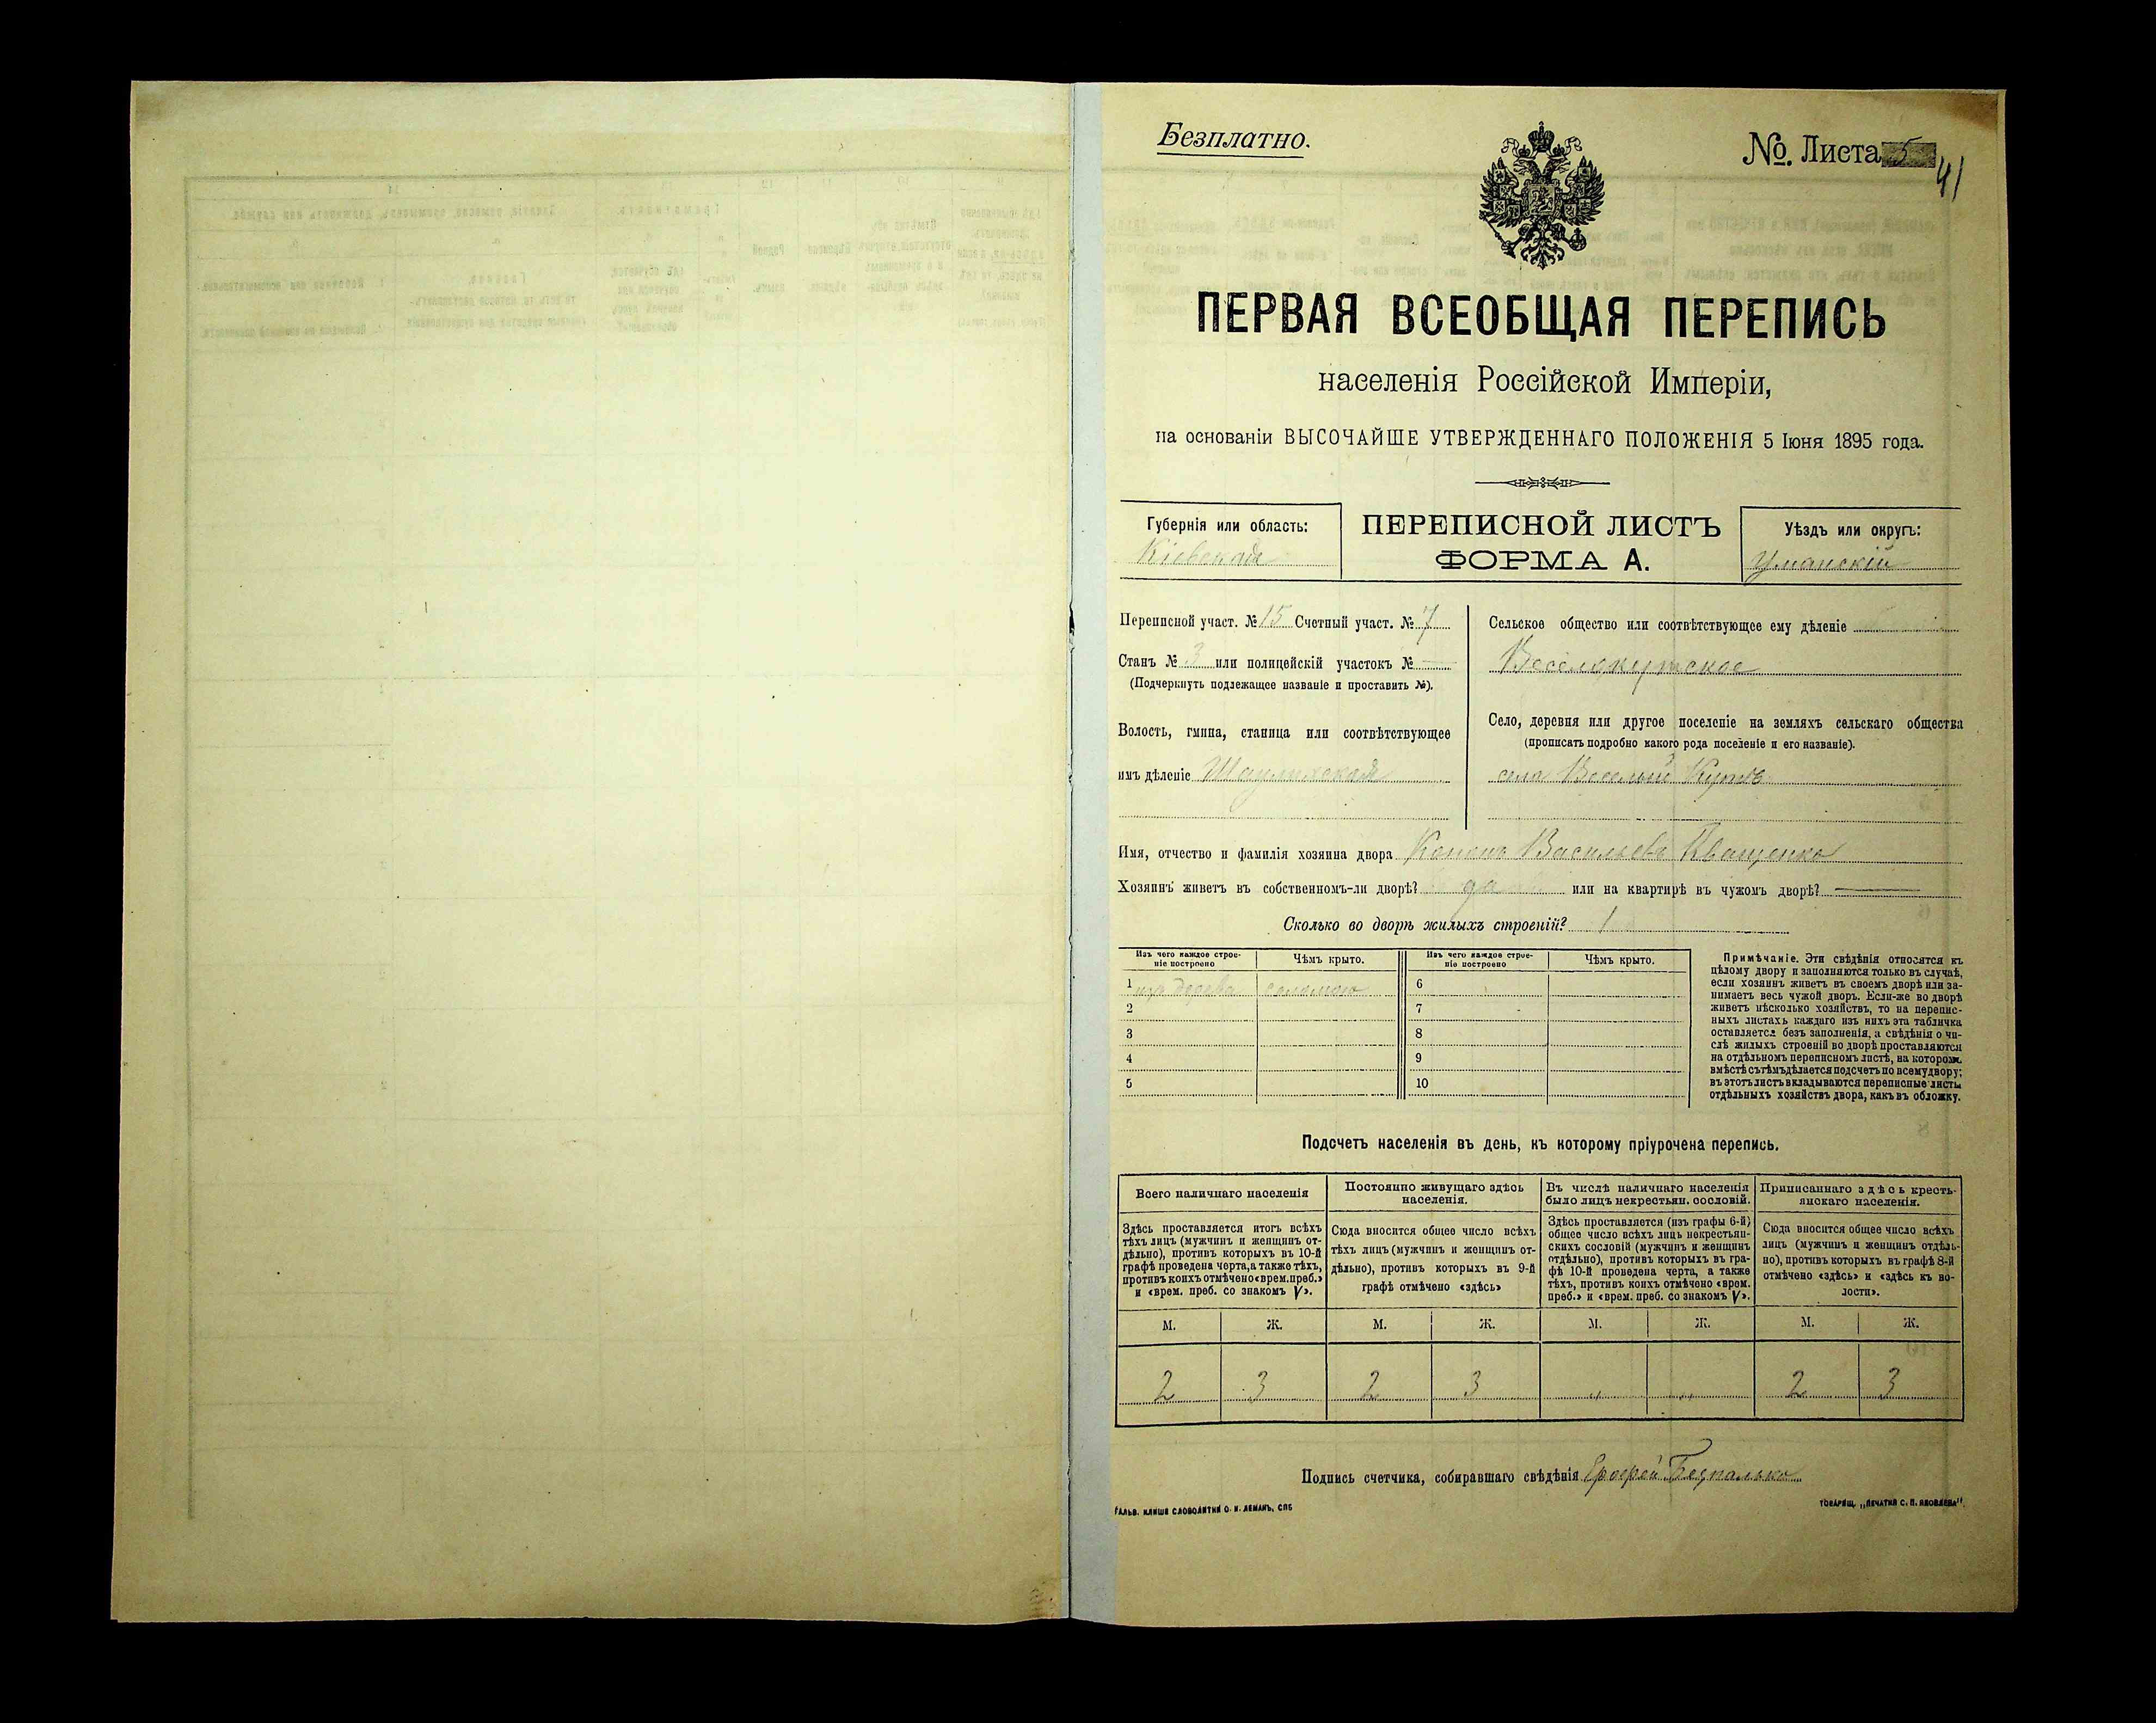 Безплатно.
№. Листа 5
41
ПЕРВАЯ ВСЕОБЩАЯ ПЕРЕПИСЬ
населенія Россійской Имперіи,
на основаніи ВЫСОЧАЙШЕ УТВЕРЖДЕННАГО ПОЛОЖЕНІЯ 5 Іюня 1895 года.
Губернія или область:
Кіевская
ПЕРЕПИСНОЙ ЛИСТЪ
ФОРМА А.
Уѣздъ или округъ:
Уманскій
Переписной участ. № 15 Счетный участ. № 7
Станъ № 3 или полицейскій участокъ № —
(Подчеркнуть подлежащее названіе и проставить №).
Волость, гмина, станица или соотвѣтствующее
имъ дѣленіе
Сельское общество или соотвѣтствующее ему дѣленіе
Веселокутское
Село, деревня или другое поселеніе на земляхъ сельскаго общества
(прописать подробно какого рода поселеніе и его названіе).
село Веселый Кутъ
Имя, отчество и фамилія хозяина двора Кононъ Васильевъ Иващенко
Хозяинъ живетъ въ собственномъ-ли дворѣ? да или на квартирѣ въ чужомъ дворѣ? —
Сколько во дворѣ жилыхъ строеній? 1
Изъ чего каждое строе-
ніе построено
Чѣмъ крыто.
Изъ чего каждое строе-
ніе построено
Чѣмъ крыто.
1 изъ дерева соломою 6
2 7
3 8
4 9
5 10
Примѣчаніе. Эти свѣдѣнія относятся къ
цѣлому двору и заполняются только въ случаѣ,
если хозяинъ живетъ въ своемъ дворѣ или за-
нимаетъ весь чужой дворъ. Если-же во дворѣ
живетъ нѣсколько хозяйствъ, то на перепис-
ныхъ листахъ каждаго изъ нихъ эта табличка
оставляется безъ заполненія, а свѣдѣнія о чи-
слѣ жилыхъ строеній во дворѣ проставляются
на отдѣльномъ переписномъ листѣ, на которомъ
вмѣстѣ съ тѣмъ дѣлается подсчетъ по всему двору;
въ этотъ листъ вкладываются переписные листы
отдѣльныхъ хозяйствъ двора, какъ въ обложку.
Подсчетъ населенія въ день, къ которому пріурочена перепись.
Всего наличнаго населенія
Здѣсь проставляется итогъ всѣхъ
тѣхъ лицъ (мужчинъ и женщинъ от-
дѣльно), противъ которыхъ въ 10-й
графѣ проведена черта, а также тѣхъ,
противъ коихъ отмѣчено «врем. преб.»
и «врем. преб. со знакомъ V».
Постоянно живущаго здѣсь
населенія.
Сюда вносится общее число всѣхъ
тѣхъ лицъ (мужчинъ и женщинъ от-
дѣльно), противъ которыхъ въ 9-й
графѣ отмѣчено «здѣсь»
Въ числѣ наличнаго населенія
было лицъ некрестьян. сословій.
Здѣсь проставляется (изъ графы 6-й)
общее число всѣхъ лицъ некрестьян-
скихъ сословій (мужчинъ и женщинъ
отдѣльно), противъ которыхъ въ гра-
фѣ 10-й проведена черта, а также
тѣхъ, противъ коихъ отмѣчено «врем.
преб.» и «врем. преб. со знакомъ V».
Приписаннаго здѣсь кресть-
янскаго населенія.
Сюда вносится общее число всѣхъ
лицъ (мужчинъ и женщинъ отдѣль-
но), противъ которыхъ въ графѣ 8-й
отмѣчено «здѣсь» и «здѣсь къ во-
лости».
М. Ж. М. Ж. М. Ж. М. Ж.
2 3 2 3 „ „ 2 3
Подпись счетчика, собиравшаго свѣдѣнія Ерофей Безпалько
ГАЛЬВ. КЛИШЕ СЛОВОЛИТНИ О. И. ЛЕМАНЪ, СПБ
ТОВАРИЩ. „ПЕЧАТНЯ С. П. ЯКОВЛЕВА".